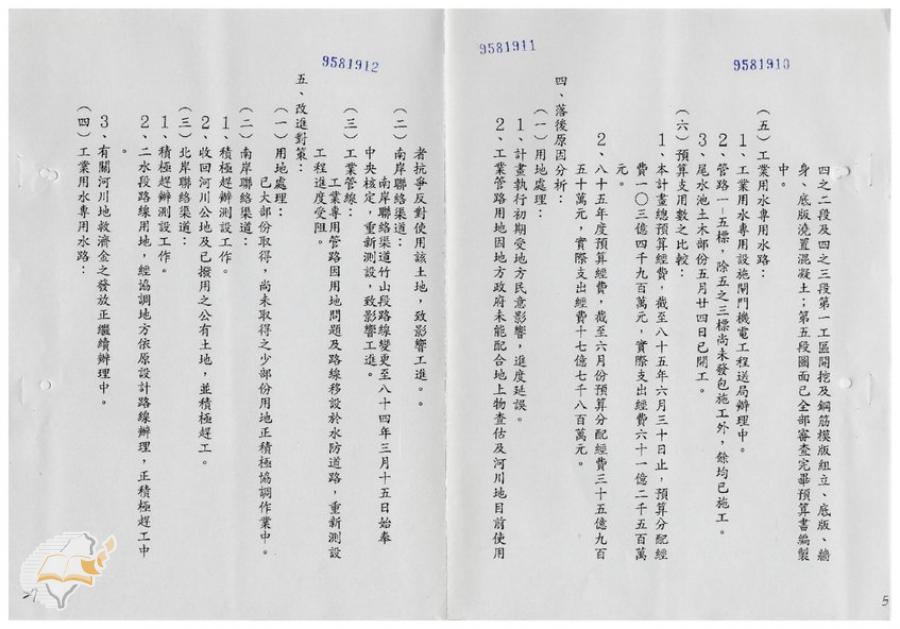 9581910
9581911
四之二段及四之三段第一工區開挖及鋼筋模版組立、底版、牆
身、底版澆置混凝土；第五段圖面已全部審查完畢預算書編製
中。
(五)工業用水專用水路：
1、工業用水專用設施閘門機電工程送局辦理中。
2、管路一—五標，除五之三標尚未發包施工外，餘均已施工。
3、尾水池土木部份五月廿四日已開工。
(六)預算支用數之比較：
1、本計畫總預算經費，截至八十五年六月三十日止，預算分配經
費一〇三億四千九百萬元，實際支出經費六十一億二千五百萬
元。
2、八十五年度預算經費，截至六月份預算分配經費三十五億九百
五十萬元，實際支出經費十七億七千八百萬元。
四、落後原因分析：
(一)用地處理：
1、計畫執行初期受地方民意影響，進度延誤。
2、工業管路用地因地方政府未能配合地上物查估及河川地目前使用
5
9581912
者抗爭反對使用該土地，致影響工進。。
(二)南岸聯絡渠道：
南岸聯絡渠道竹山段路線變更至八十四年三月十五日始奉
中央核定，重新測設，致影響工進。
(三)工業管線：
工業專用管路因用地問題及路線移設於水防道路，重新測設
工程進度受阻。
五、改進對策：
(一)用地處理：
已大部份取得，尚未取得之少部份用地正積極協調作業中。
(二)南岸聯絡渠道：
1、積極趕辦測設工作。
2、收回河川公地及已撥用之公有土地，並積極趕工。
(三)北岸聯絡渠道：
1、積極趕辦測設工作。
2、二水段路線用地，經協調地方依原設計路線辦理，正積極趕工中
。
3、有關河川地救濟金之發放正繼續辦理中。
(四)工業用水專用水路：